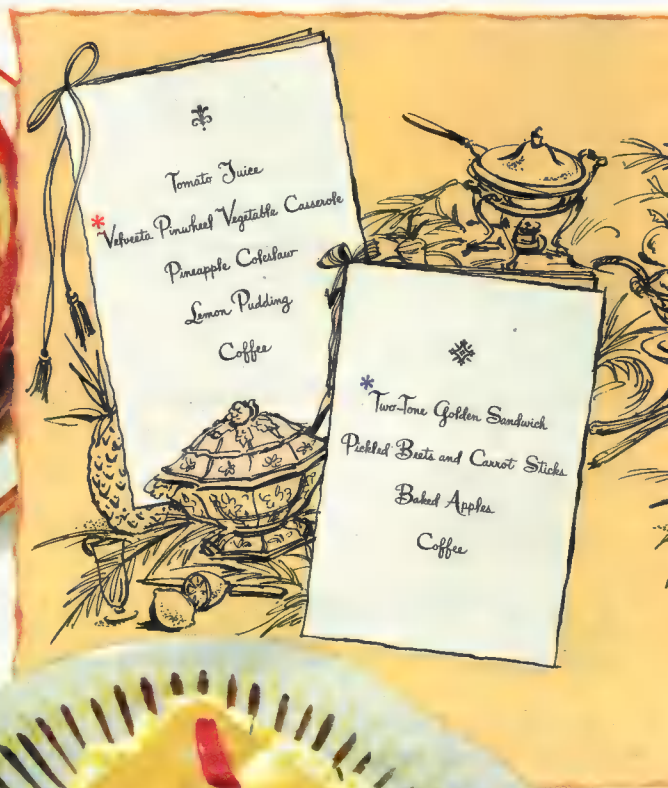 Tomato Juice
*Velveeta Pinwheel Vegetable Casserole
Pineapple Coleslaw
Lemon Pudding
Coffee
*Two-Tone Golden Sandwich
Pickled Beets and Carrot Sticks
Baked Apples
Coffee